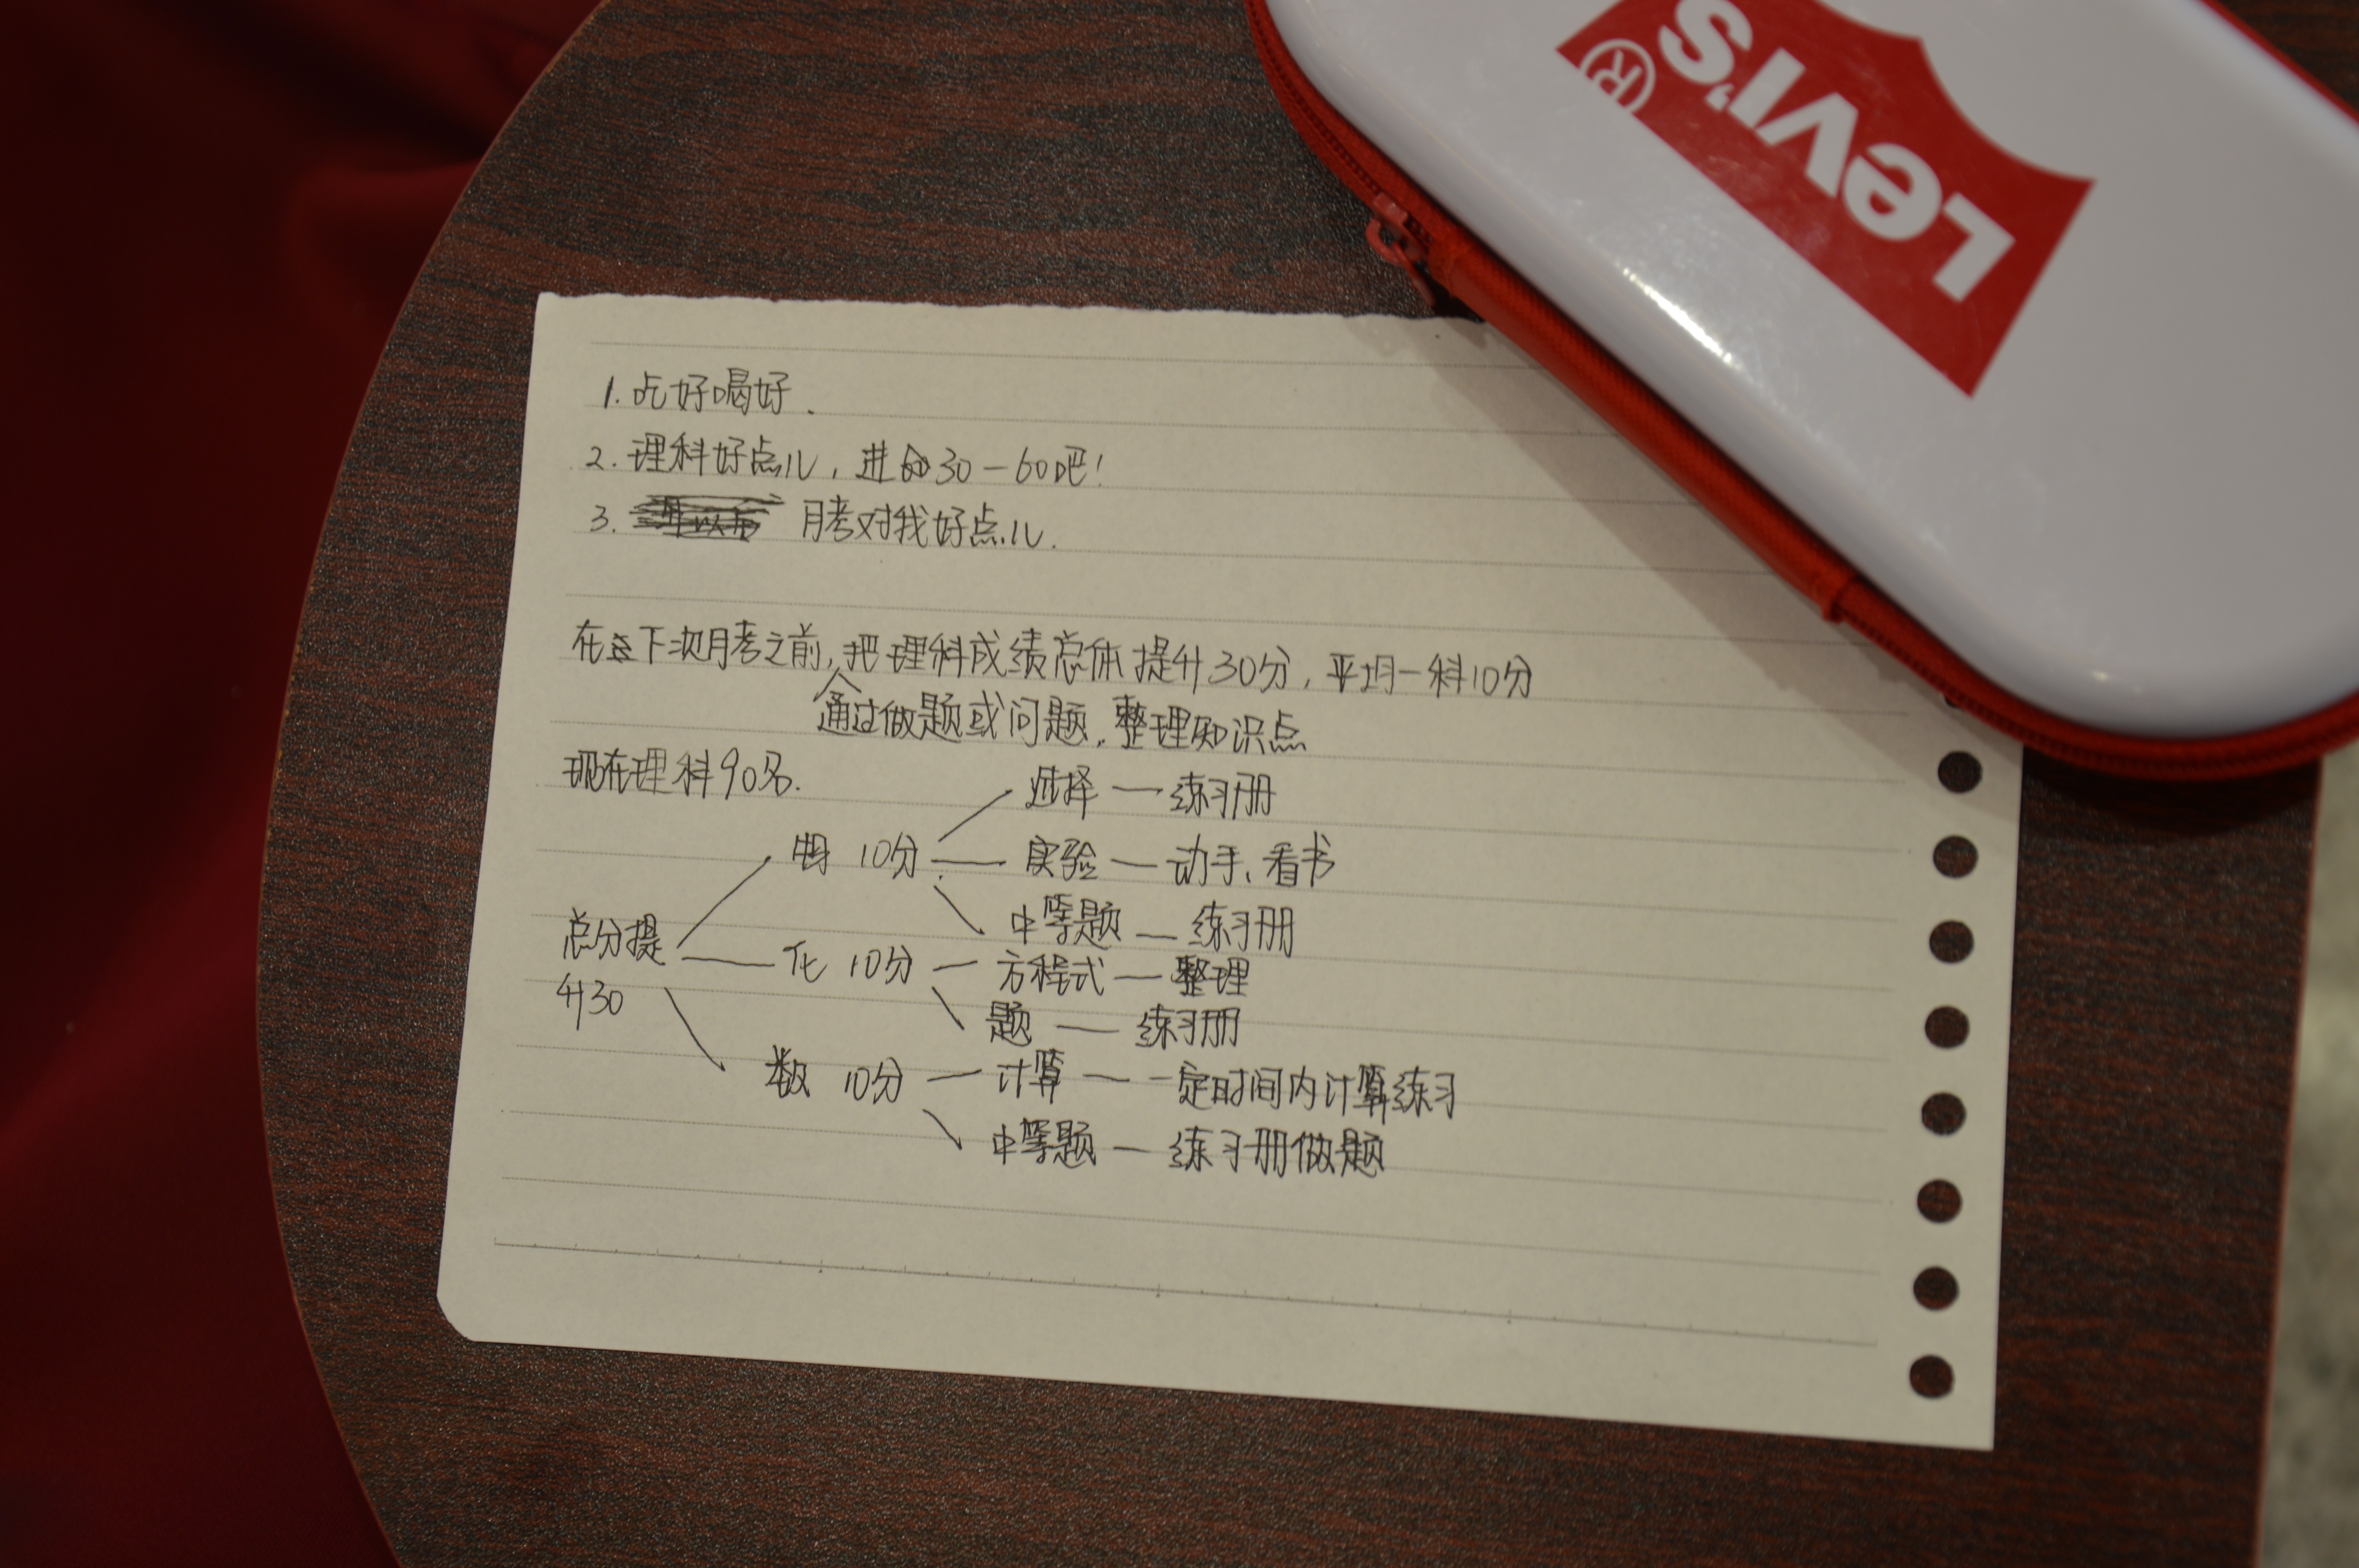 LEVI'S®
1. 吃好喝好.
2. 理科好点儿, 进30－60吧!
3. 月考对我好点儿.
在下次月考之前, 把理科成绩总体提升30分, 平均一科10分
通过做题或问题, 整理知识点
现在理科90名.
选择 — 练习册
10分
实验 — 动手、看书
中等题 — 练习册
总分提
化 10分
方程式 — 整理
升30
题 — 练习册
数 10分 — 计算 — 一定时间内计算练习
中等题 — 练习册做题